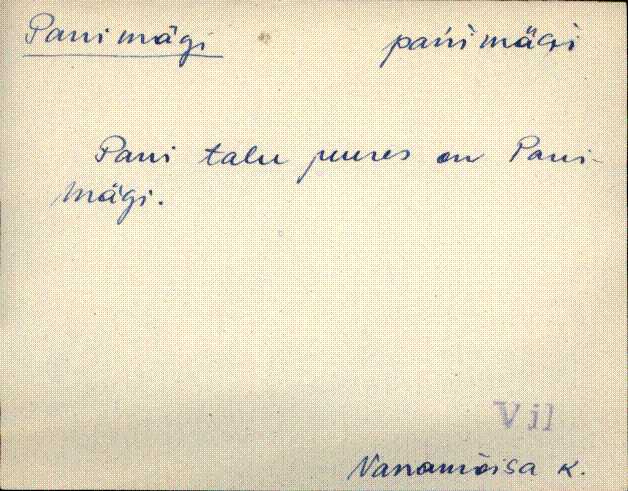 Panimägi pańimäGi
Pani talu juures on Pani-
mägi.
Vil
Vanamõisa k.